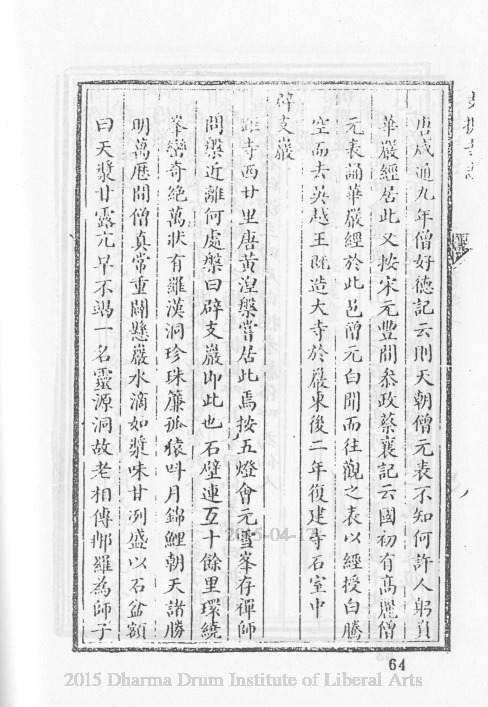 唐咸通九年僧好德記云則天朝僧元表不知何許人躬負
華嚴經居此又按宋元豐間叅政蔡襄記云國初有高麗僧
元表誦華嚴經於此邑僧元白聞而往觀之表以經授白騰
空而去吳越王旣造大寺於巖東後二年復建寺石室中
辟支巖
距寺西廿里唐黃涅槃嘗居此焉按五燈會元雪峯存禪師
問槃近離何處槃曰辟支巖卽此也石壁連亙十餘里環繞
峯巒奇絕萬狀有羅漢洞珍珠簾孤猿叫月錦鯉朝天諸勝
明萬厯間僧真常重闢懸巖水滴如漿味甘冽盛以石盆額
曰天漿甘露亢旱不竭一名靈源洞故老相傳那羅為師子
64
2015-04-17
2015 Dharma Drum Institute of Liberal Arts